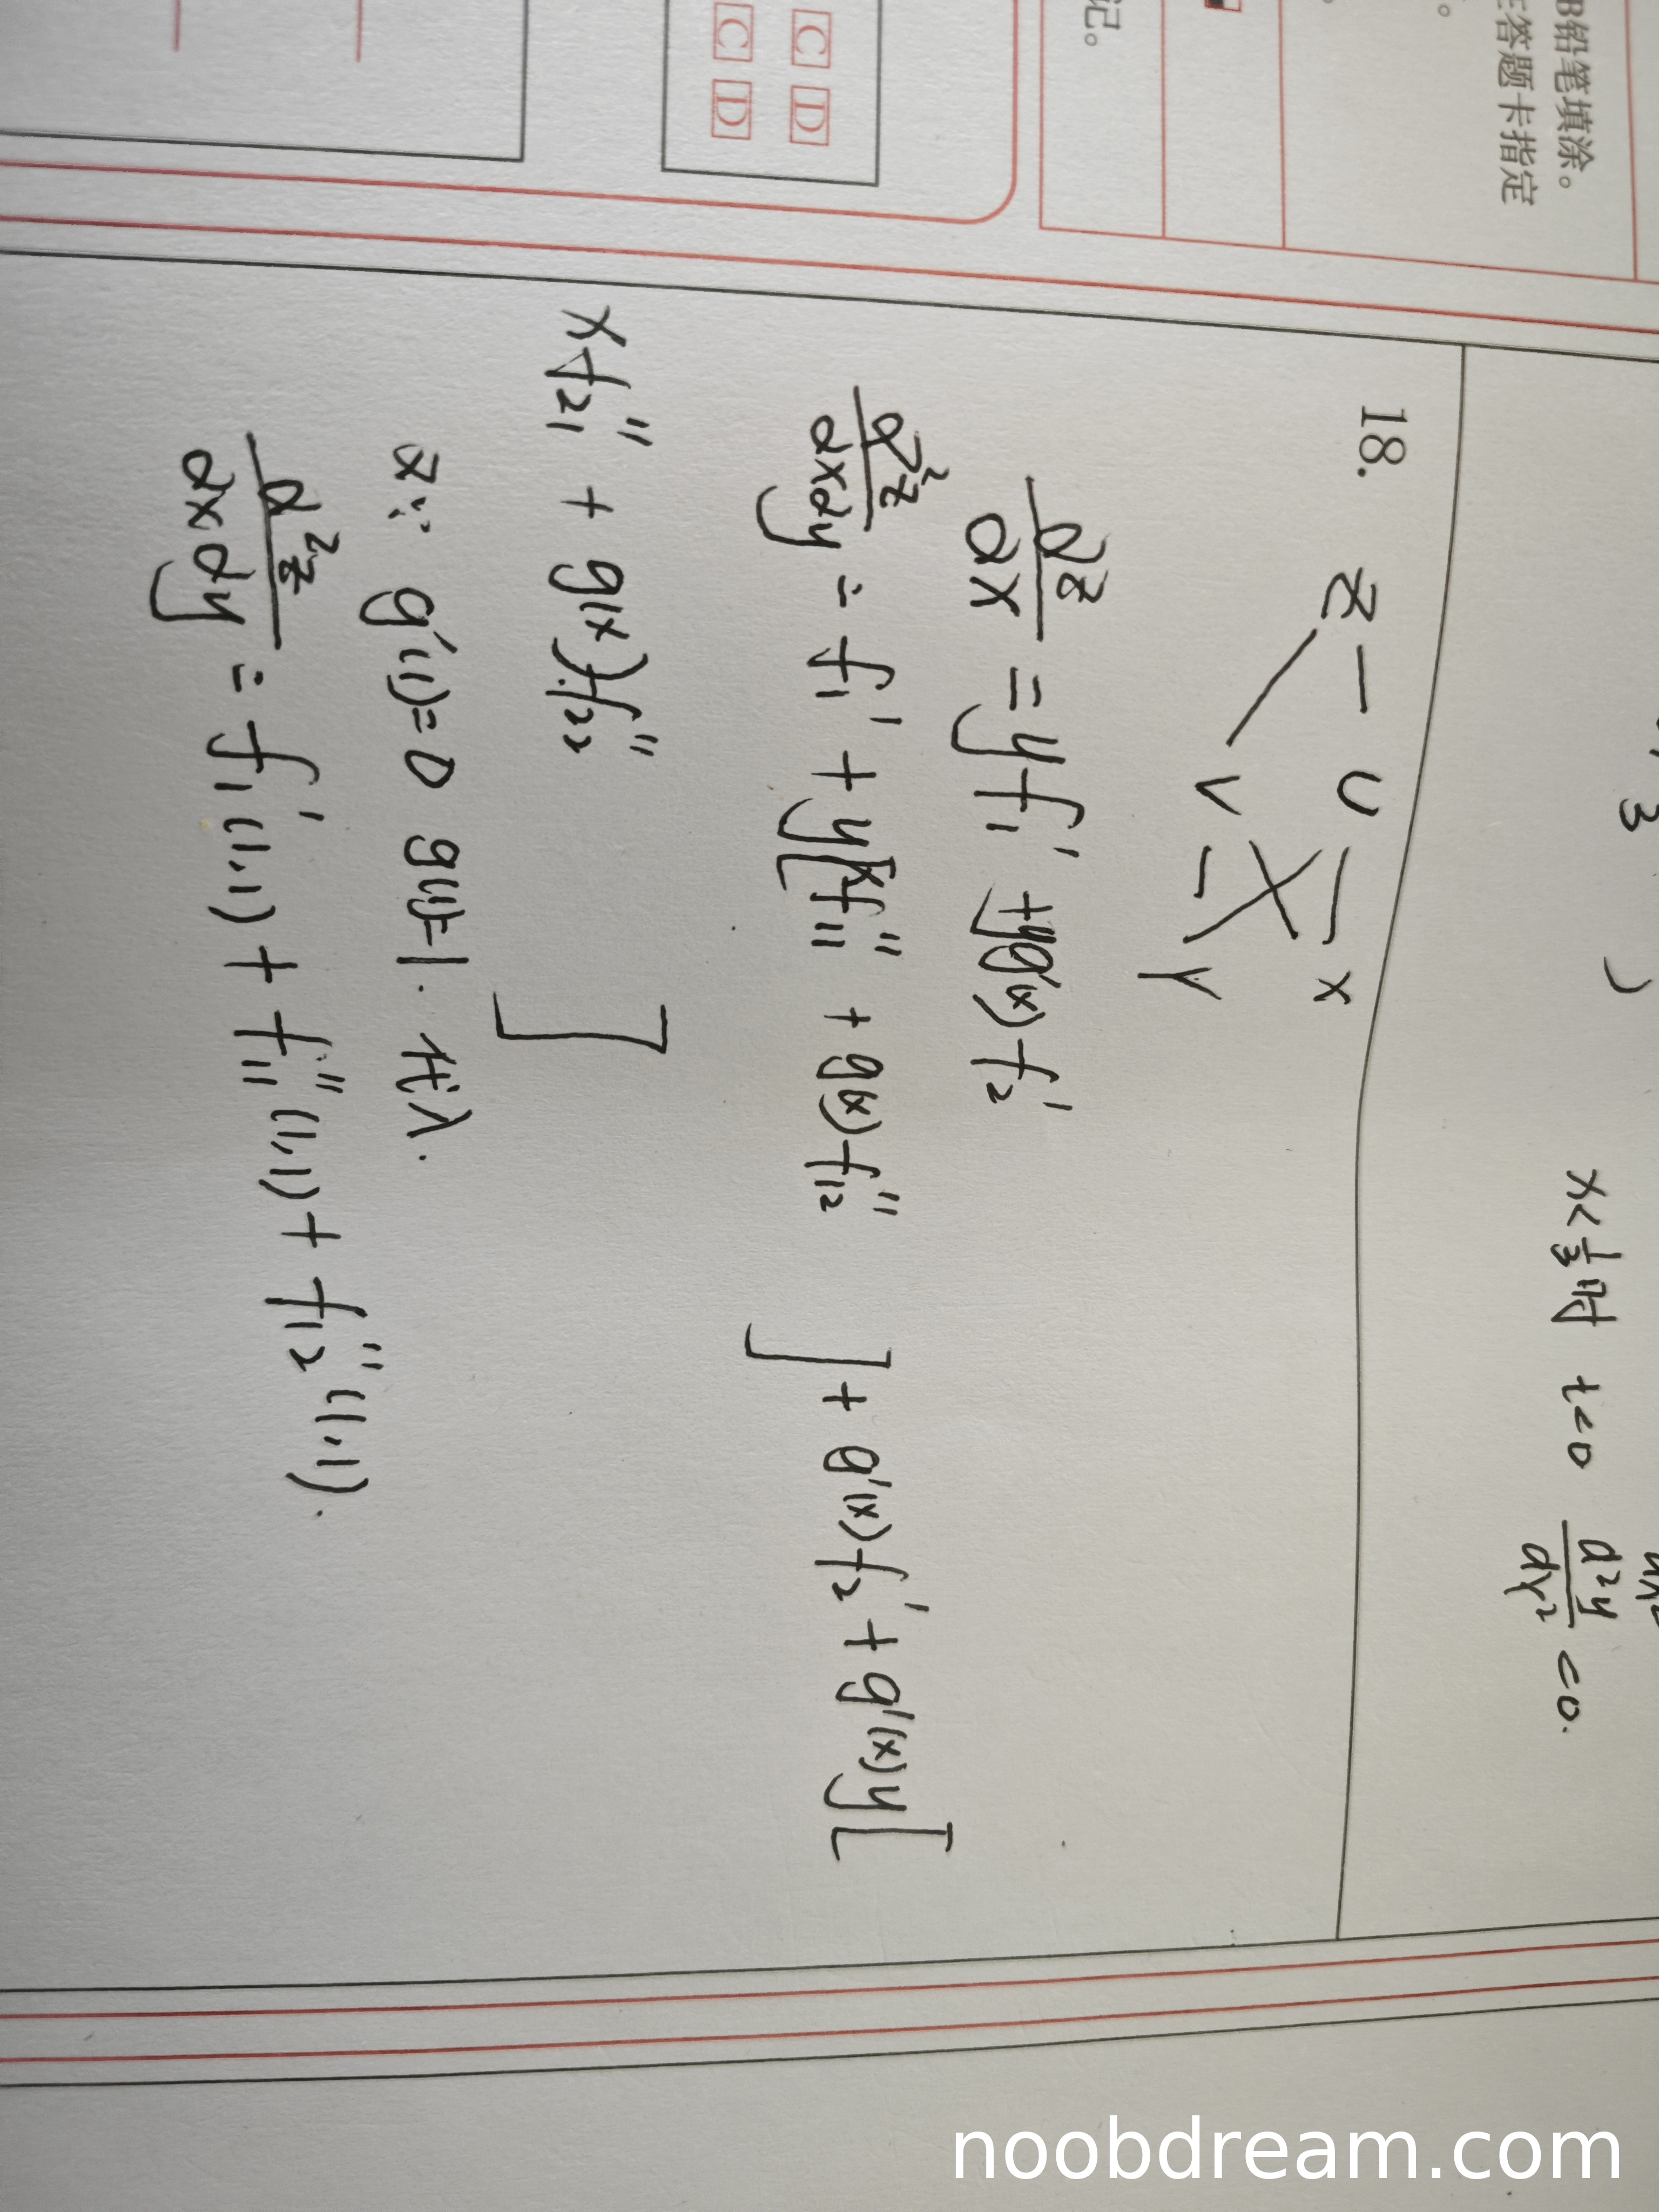 B铅笔填涂。
答题卡指定
记。
C D
C D
3 )
x<1/3时 t<0 d²y/dy² <0.
18.
z - u - x
v - y
∂z/∂x = yf₁' + yg'(x)f₂'
∂²z/∂x∂y = f₁' + y[xf₁₁'' + g(x)f₁₂'' ] + g'(x)f₂' + g'(x)y[
xf₂₁'' + g(x)·f₂₂'' ]
又∵ g'(1)=0 g(1)=1. 代入.
∂²z/∂x∂y = f₁'(1,1) + f₁₁''(1,1) + f₁₂''(1,1).
noobdream.com